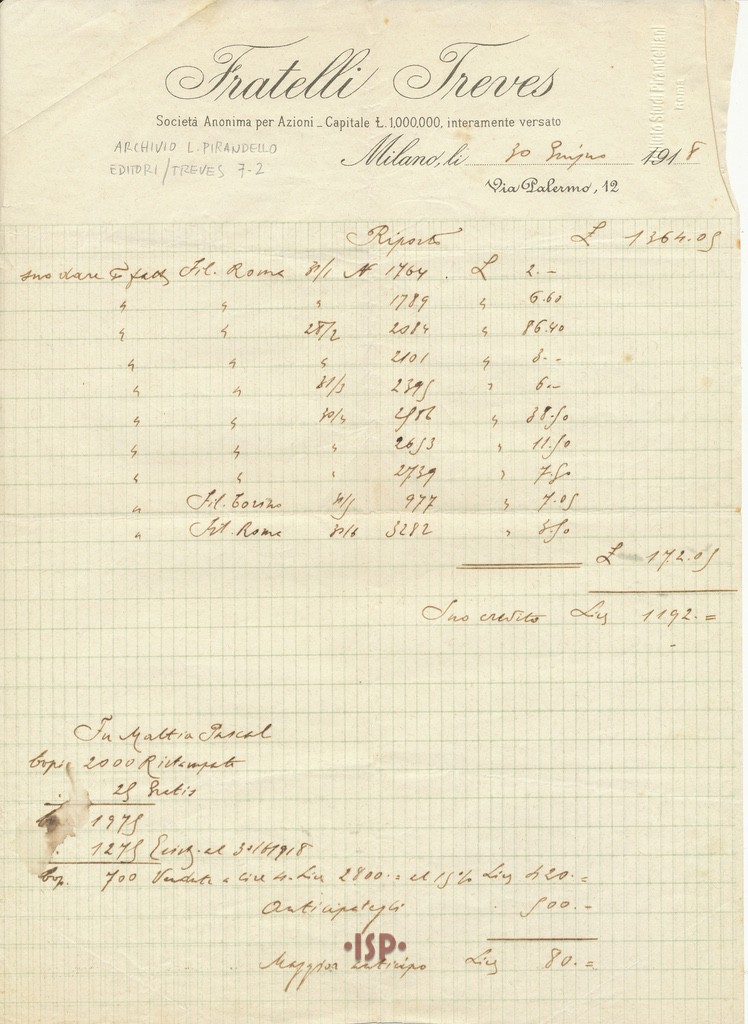 Fratelli Treves
Società Anonima per Azioni _ Capitale Ł. 1,000,000, interamente versato
ARCHIVIO L. PIRANDELLO
EDITORI / TREVES 7-2
Milano, li 30 Giugno 1918
Via Palermo, 12
Studi Pirandelliani
Roma
Riporto £ 1364.05
suo dare Fil. Roma 31/1 N 1764 . £ 2.-
" " 1789 " 6.60
" " 28/2 2084 " 86.40
" " " 2101 " 3.-
" " 31/3 2395 " 6.-
" " 30/4 2586 " 38.50
" " " 2653 " 11.50
" " " 2739 " 7.50
" Fil. Torino 31/5 977 " 7.05
" Fil. Roma 30/6 3282 " 3.50
£ 172.05
Suo credito Lire 1192.=
Fu Mattia Pascal
Cop. 2000 Ristampate
25 Gratis
1975
1275 Esist. al 30/6/1918
Cop. 700 Vendute a Lire 4. Lire 2800.= al 15% Lire 420.=
Anticipategli 500.-
•ISP•
Maggior anticipo Lire 80.=